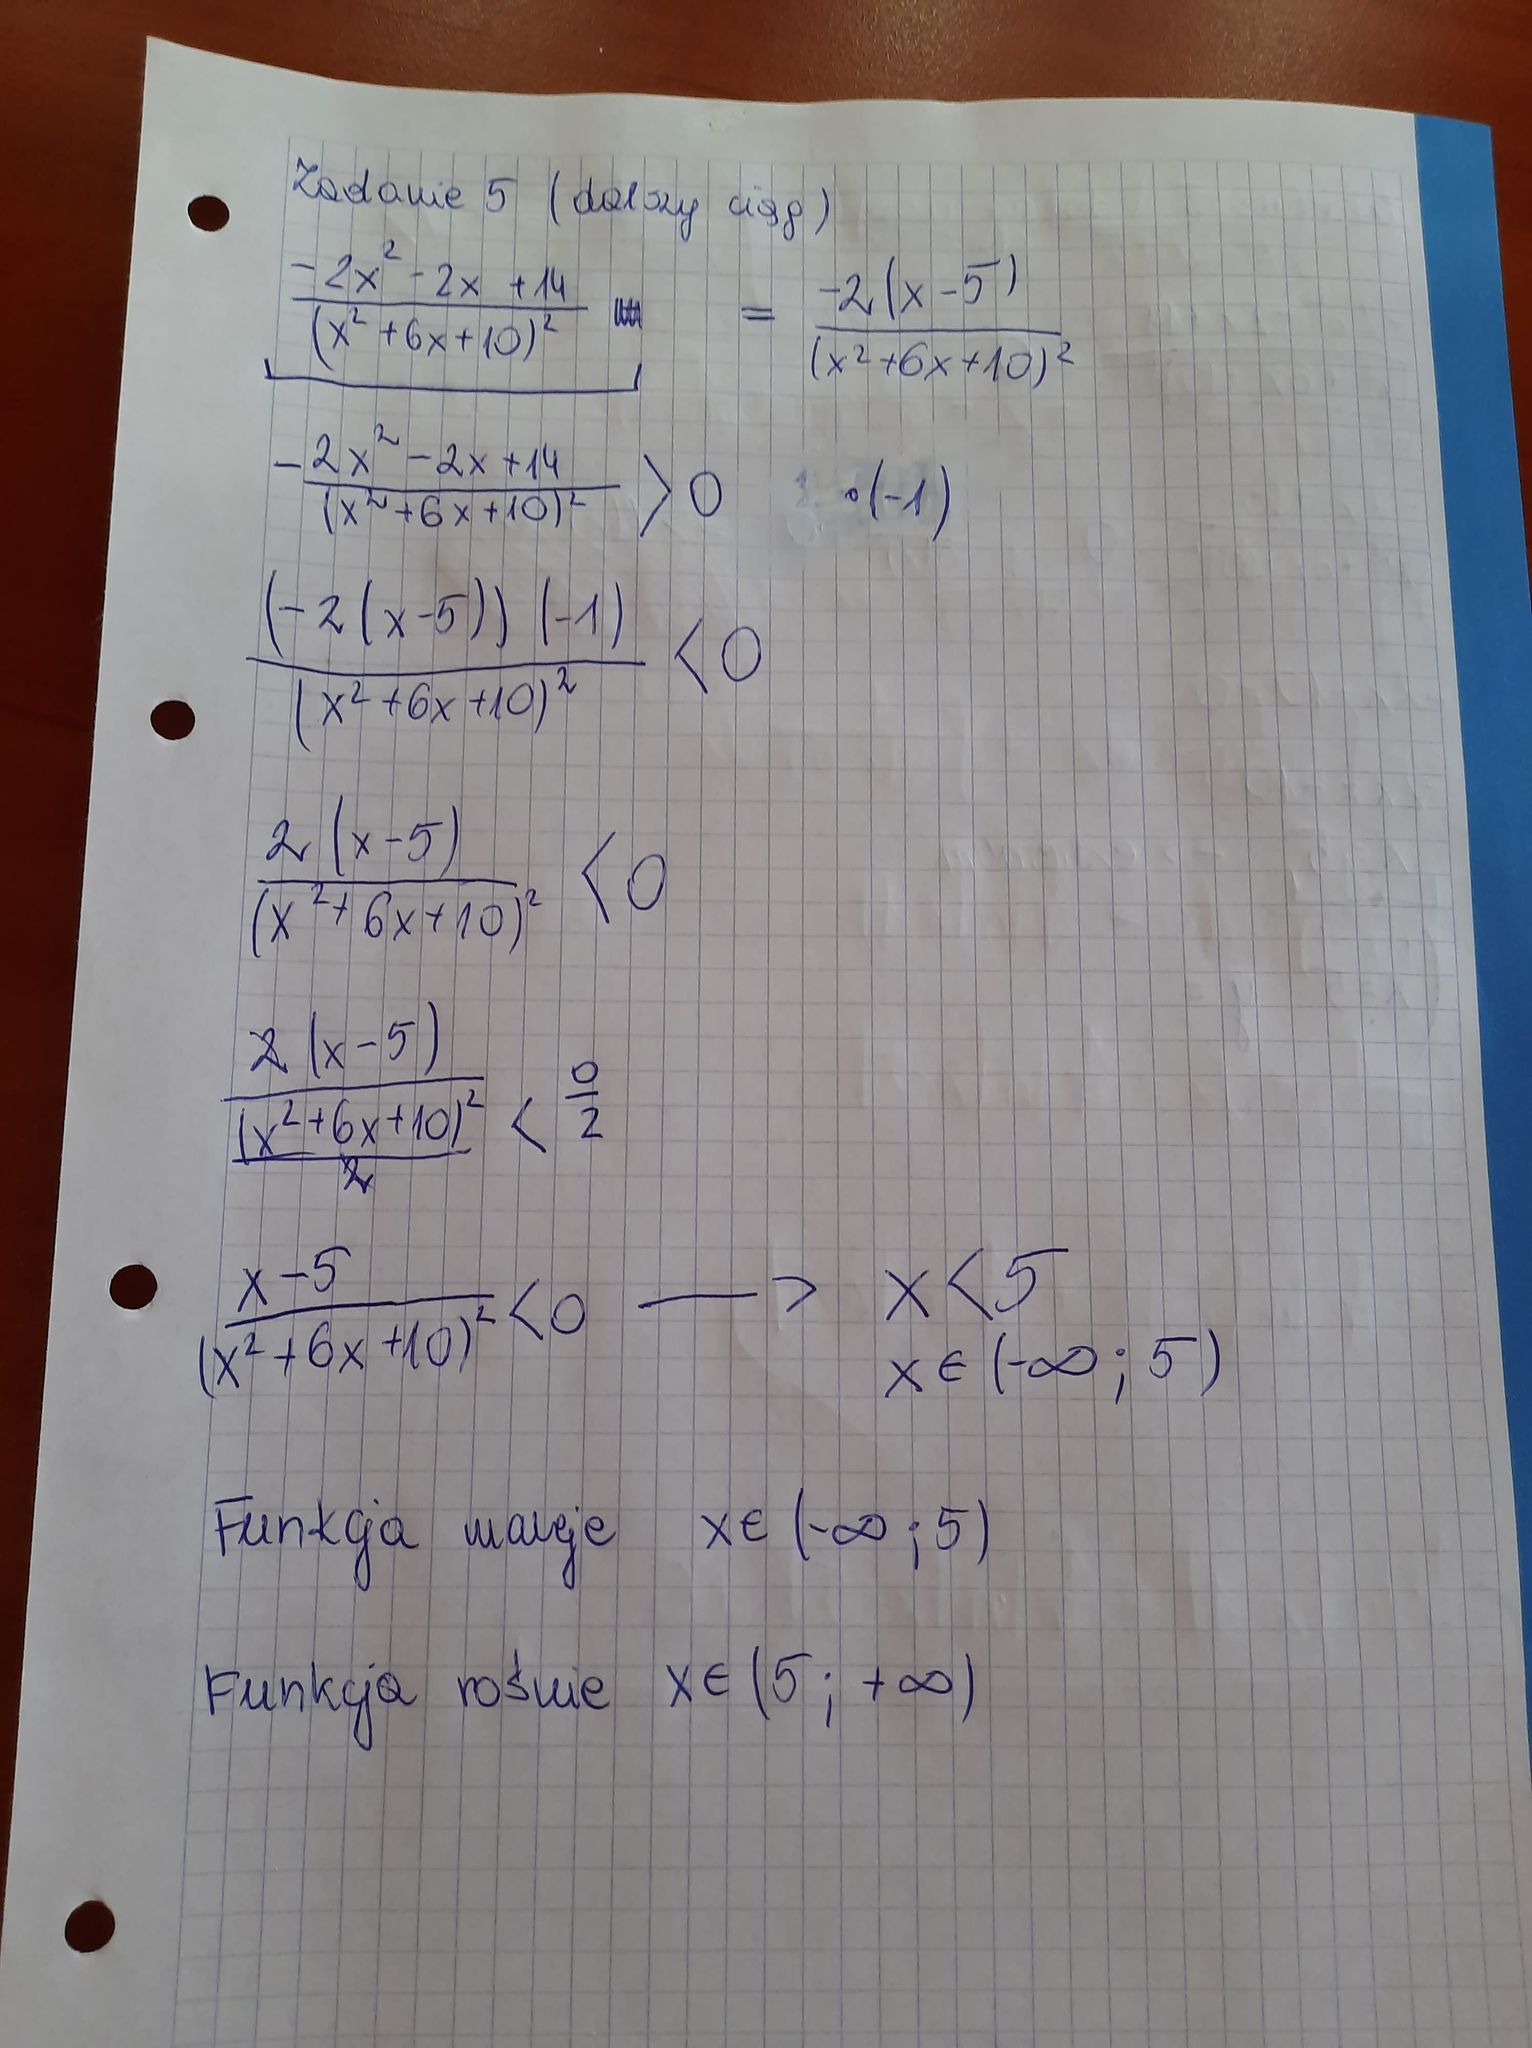 Zadanie 5 (dalszy ciąg)
(-2x² - 2x + 14)/(x² + 6x + 10)² = -2(x - 5)/(x² + 6x + 10)²
-2x² - 2x + 14/(x² + 6x + 10)² > 0 ·(-1)
(-2(x - 5)) (-1)/(x² + 6x + 10)² < 0
2(x - 5)/(x² + 6x + 10)² < 0
2(x - 5)/(x² + 6x + 10)²/2 < 0/2
x - 5/(x² + 6x + 10)² < 0 —> x < 5
x ∈ (-∞; 5)
Funkcja maleje x ∈ (-∞; 5)
Funkcja rośnie x ∈ (5; +∞)